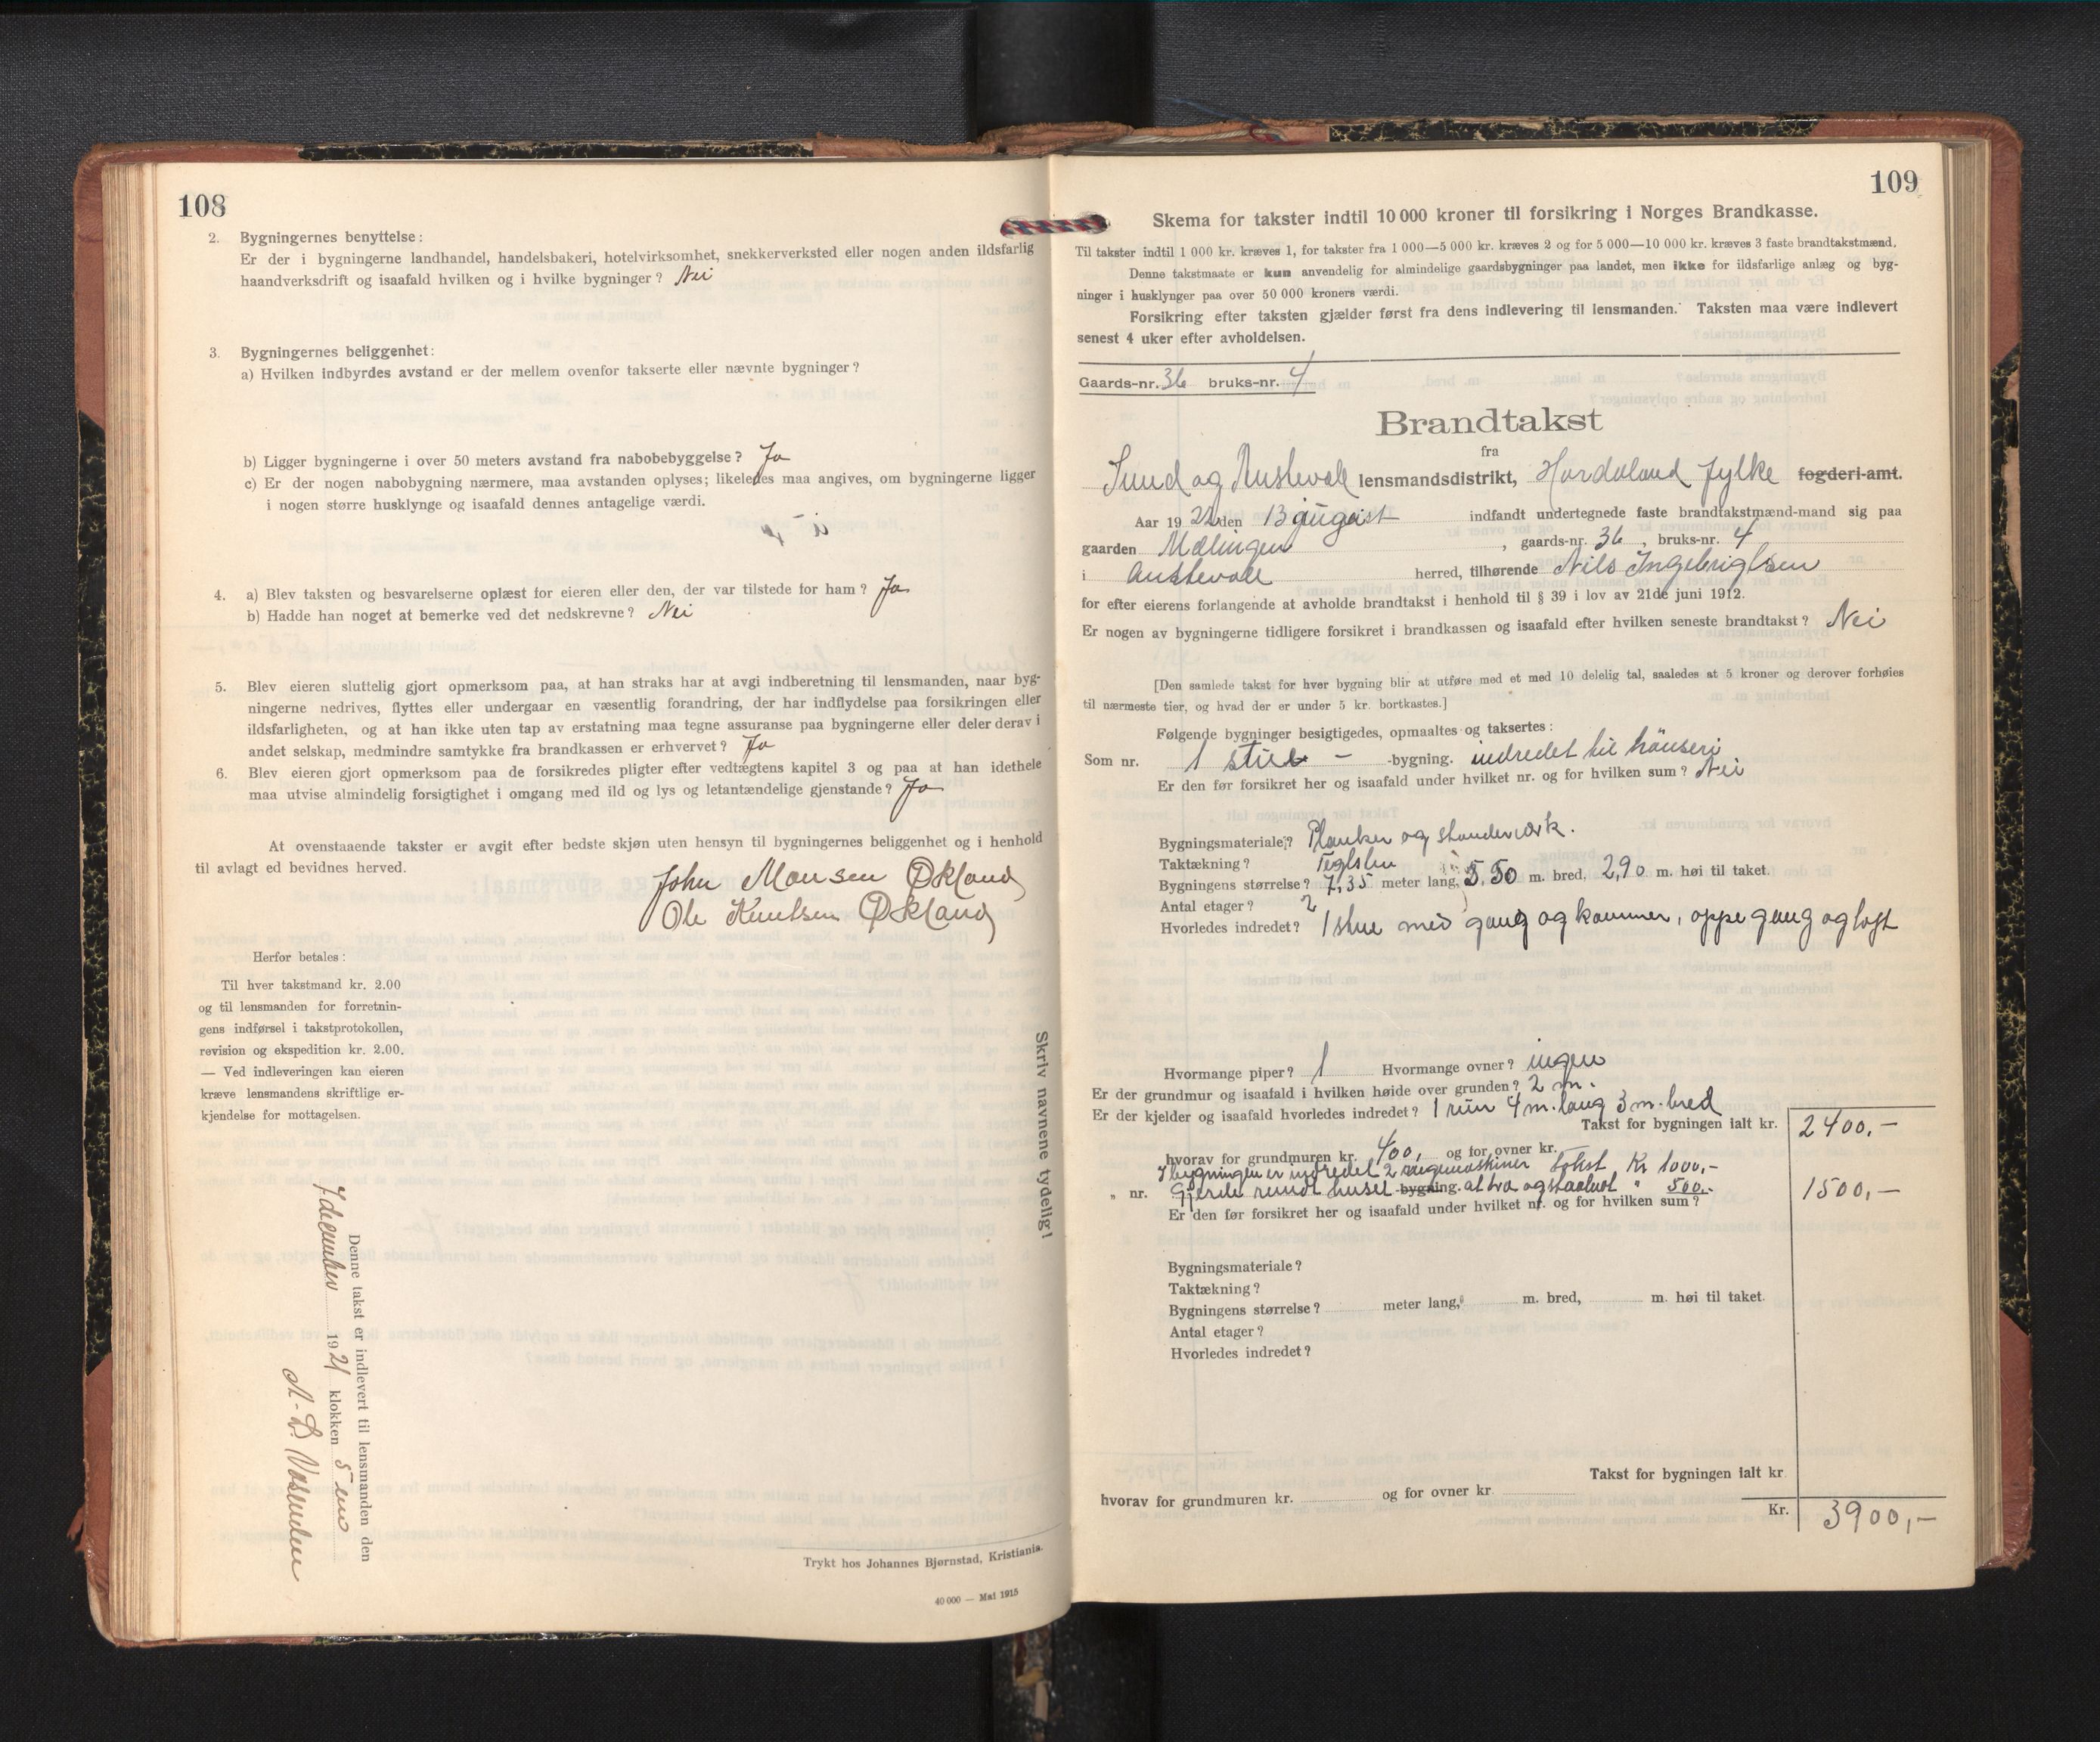 108
2. Bygningernes benyttelse:
Er der i bygningerne landhandel, handelsbakeri, hotelvirksomhet, snekkerverksted eller nogen anden ildsfarlig
haandverksdrift og isaafald hvilken og i hvilke bygninger? Nei
3. Bygningernes beliggenhet:
a) Hvilken indbyrdes avstand er der mellem ovenfor takserte eller nævnte bygninger?
b) Ligger bygningerne i over 50 meters avstand fra nabobebyggelse? Ja
c) Er der nogen nabobygning nærmere, maa avstanden oplyses; likeledes maa angives, om bygningerne ligger
i nogen større husklynge og isaafald dennes antagelige værdi.
4. a) Blev taksten og besvarelserne oplæst for eieren eller den, der var tilstede for ham? Ja
b) Hadde han noget at bemerke ved det nedskrevne? Nei
5. Blev eieren sluttelig gjort opmerksom paa, at han straks har at avgi indberetning til lensmanden, naar byg-
ningerne nedrives, flyttes eller undergaar en væsentlig forandring, der har indflydelse paa forsikringen eller
ildsfarligheten, og at han ikke uten tap av erstatning maa tegne assuranse paa bygningerne eller deler derav i
andet selskap, medmindre samtykke fra brandkassen er erhvervet? Ja
6. Blev eieren gjort opmerksom paa de forsikredes pligter efter vedtægtens kapitel 3 og paa at han idethele
maa utvise almindelig forsigtighet i omgang med ild og lys og letantændelige gjenstande? Ja
At ovenstaaende takster er avgit efter bedste skjøn uten hensyn til bygningernes beliggenhet og i henhold
til avlagt ed bevidnes herved.
John Monsen Økland
Ole Knutsen Økland
Herfor betales:
Til hver takstmand kr. 2.00
og til lensmanden for forretnin-
gens indførsel i takstprotokollen,
revision og ekspedition kr. 2.00.
— Ved indleveringen kan eieren
kræve lensmandens skriftlige er-
kjendelse for mottagelsen.
Skriv navnene tydelig!
Denne takst er indlevert til lensmanden den
7 december 1921 klokken 5 em
Trykt hos Johannes Bjørnstad, Kristiania.
40 000 — Mai 1915
109
Skema for takster indtil 10 000 kroner til forsikring i Norges Brandkasse.
Til takster indtil 1 000 kr. kræves 1, for takster fra 1 000—5 000 kr. kræves 2 og for 5 000—10 000 kr. kræves 3 faste brandtakstmænd.
Denne takstmaate er kun anvendelig for almindelige gaardsbygninger paa landet, men ikke for ildsfarlige anlæg og byg-
ninger i husklynger paa over 50 000 kroners værdi.
Forsikring efter taksten gjælder først fra dens indlevering til lensmanden. Taksten maa være indlevert
senest 4 uker efter avholdelsen.
Gaards-nr. 36 bruks-nr. 4
Brandtakst
fra
Sund og Austevoll lensmandsdistrikt, Hordaland fylke fogderi-amt.
Aar 1922 den 13 august indfandt undertegnede faste brandtakstmænd-mand sig paa
gaarden Mælingen, gaards-nr. 36, bruks-nr. 4
i Austevoll herred, tilhørende Nils Ingebrigtsen
for efter eierens forlangende at avholde brandtakst i henhold til § 39 i lov av 21de juni 1912.
Er nogen av bygningerne tidligere forsikret i brandkassen og isaafald efter hvilken seneste brandtakst? Nei
[Den samlede takst for hver bygning blir at utføre med et med 10 delelig tal, saaledes at 5 kroner og derover forhøies
til nærmeste tier, og hvad der er under 5 kr. bortkastes.]
Følgende bygninger besigtigedes, opmaaltes og taksertes:
Som nr. 1 stue - -bygning. indredet til hønseri
Er den før forsikret her og isaafald under hvilket nr. og for hvilken sum? Nei
Bygningsmateriale? Planker og standerværk.
Taktækning? Teglsten
Bygningens størrelse? 7,35 meter lang, 5,50 m. bred, 2,90 m. høi til taket.
Antal etager? 2
Hvorledes indredet? 1 stue med gang og kammer, oppe gang og loft
Hvormange piper? 1 Hvormange ovner? ingen
Er der grundmur og isaafald i hvilken høide over grunden? 2 m.
Er der kjelder og isaafald hvorledes indredet? 1 rum 4 m. lang 3 m. bred
Takst for bygningen ialt kr. 2400,-
hvorav for grundmuren kr. 400, og for ovner kr. —
I bygningen er indredet 2 rugemaskiner takst Kr 1000,-
" nr. Gjerde rundt huset bygning. at tra og staaltraad " 500,- 1500,-
Er den før forsikret her og isaafald under hvilket nr. og for hvilken sum?
Bygningsmateriale?
Taktækning?
Bygningens størrelse? meter lang, m. bred, m. høi til taket.
Antal etager?
Hvorledes indredet?
Takst for bygningen ialt kr.
hvorav for grundmuren kr. og for ovner kr.
Kr. 3900,-